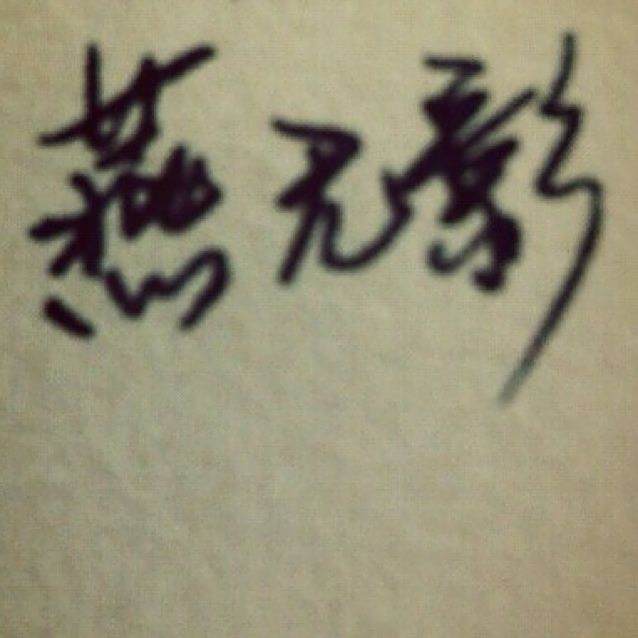 燕无影